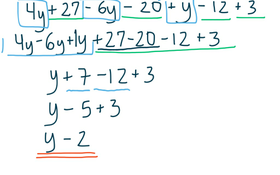 4y + 27 - 6y - 20 + y - 12 + 3
4y - 6y + 1y + 27 - 20 - 12 + 3
y + 7 - 12 + 3
y - 5 + 3
y - 2